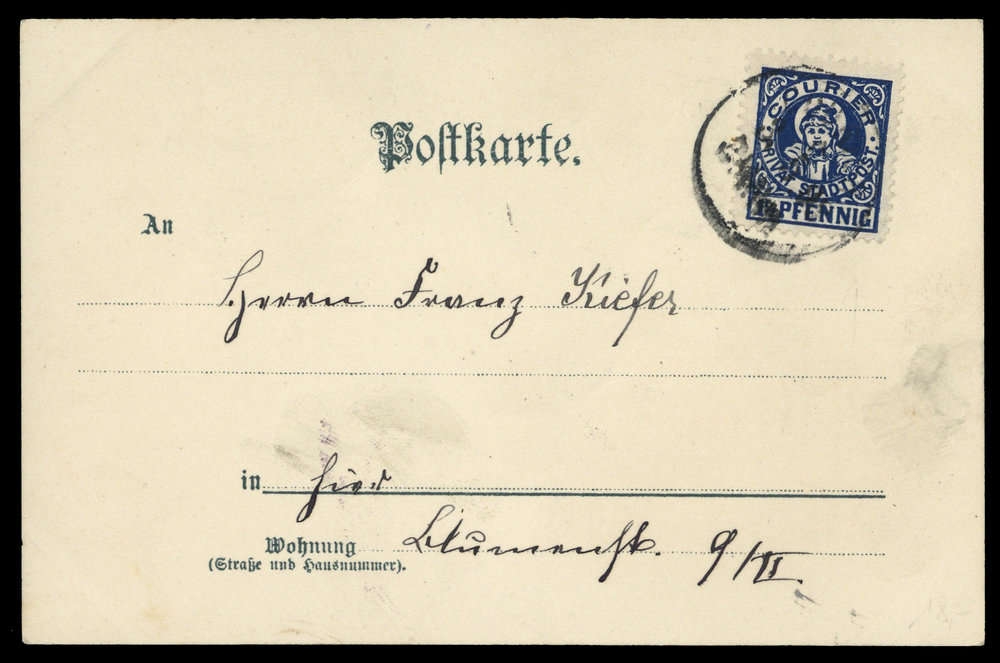 Postkarte.
COURIER
PRIVAT STADTPOST.
PFENNIG
An
Herrn Franz Kiefer
in hier
Wohnung Blumenstr. 9/II.
(Straße und Hausnummer).